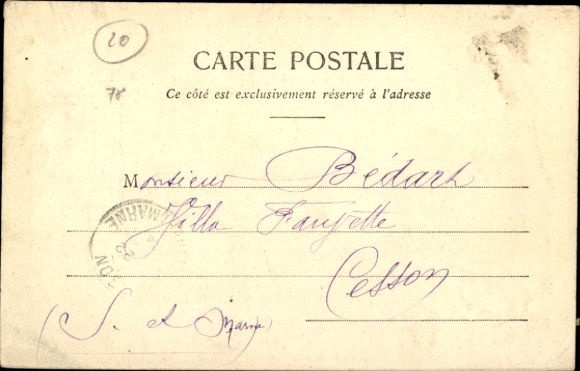 20
CARTE POSTALE
78
Ce côté est exclusivement réservé à l'adresse
Monsieur Bédart
Villa Fauvette
MARNE
SON
Cesson
(S. et Marne)